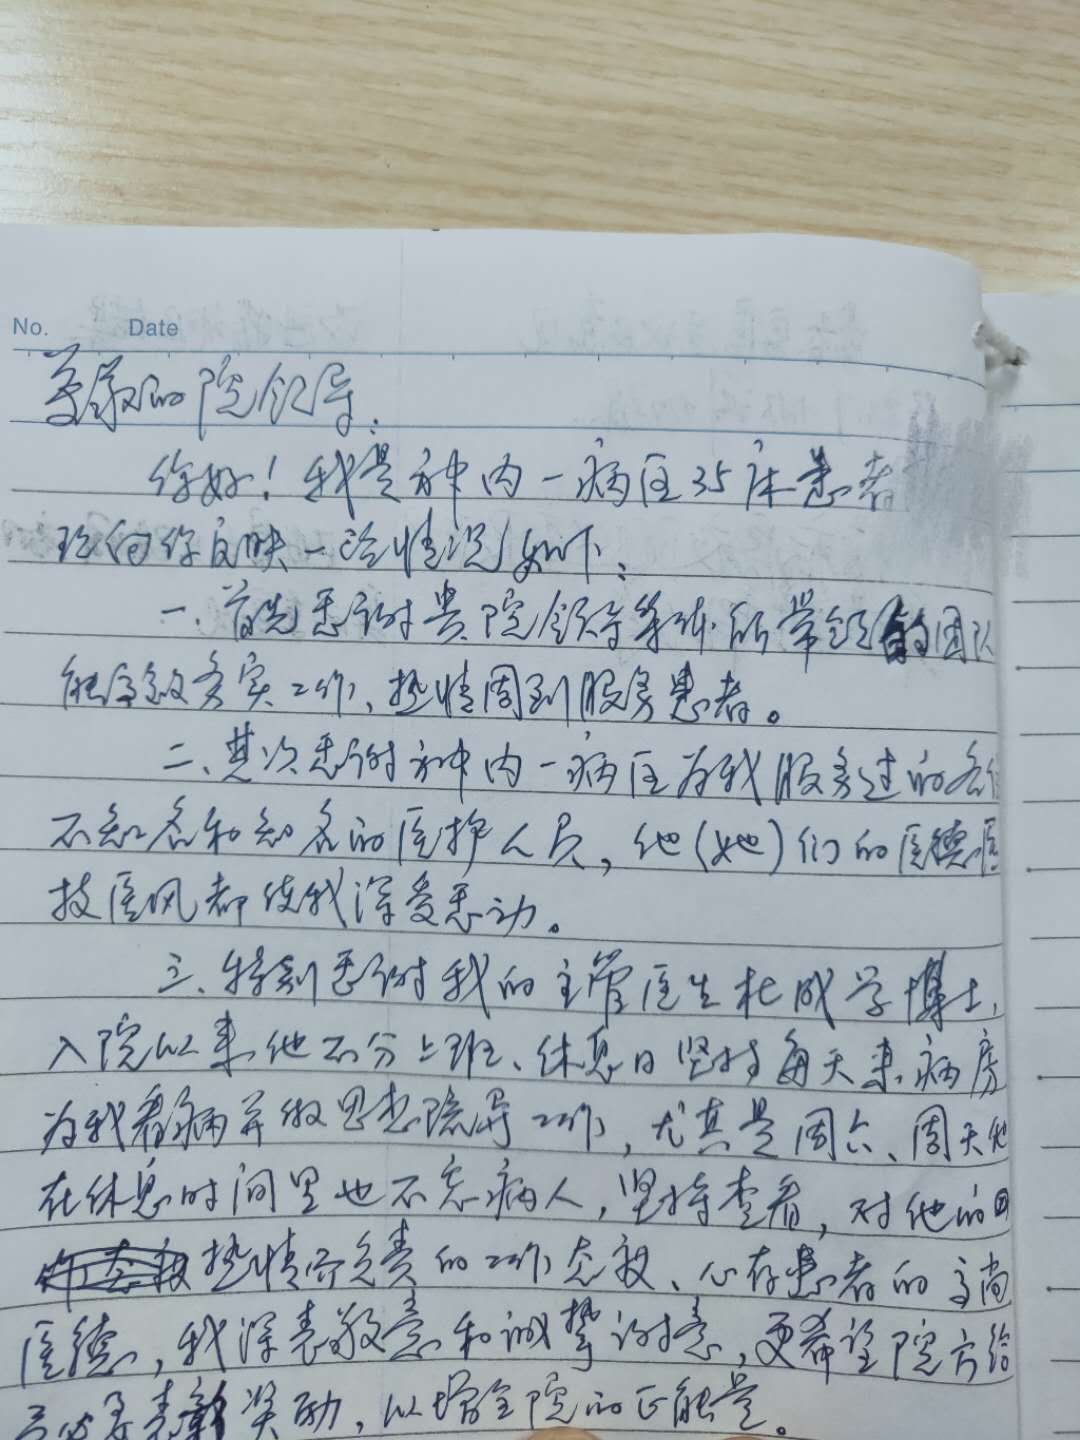 No. Date
尊敬的院领导:
你好!我是神内一病区35床患者
现向你反映一些情况如下:
一.首先感谢贵院领导集体所带领的团队
能高效务实工作、热情周到服务患者。
二、其次感谢神内一病区为我服务过的各位
不知名和知名的医护人员,他(她)们的医德医
技医风都使我深受感动。
三、特别感谢我的主管医生杜成学博士,
入院以来他不分上班、休息日坚持每天来病房
为我看病并做思想疏导工作,尤其是周六、周天他
在休息时间里也不忘病人,坚持查看,对他的
热情而负责的工作态度、心存患者的高尚
医德,我深表敬意和诚挚谢意,更希望院方给
予表彰奖励,以增全院的正能量。